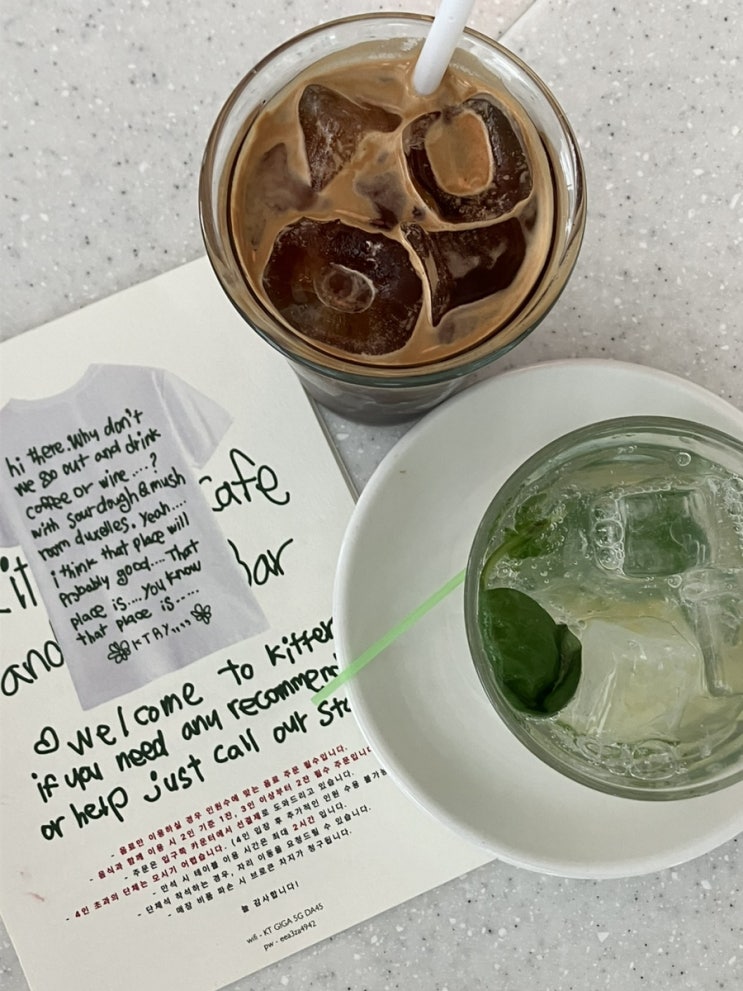 hi there. Why don't
we go out and drink
coffee or wire ....?
with sourdough & mush
room duxelles. Yeah....
i think that place will
Probably good.... That
place is.... you know
that place is .....
KTRY,,,,
Cafe
and
bar
Welcome to kitter
if you need any recommen
or help just call out
- 음료만 이용하실 경우 인원수에 맞는 음료 주문 필수입니다.
- 음식과 함께 이용 시 2인 기준 1잔, 3인 이상부터 2잔 필수 주문입니다
- 주문은 입구쪽 카운터에서 선결제로 도와드리고 있습니다.
- 4인 초과의 단체는 모시기 어렵습니다. (4인 입장 후 추가적인 인원 수용 불가능
- 만석 시 테이블 이용 시간은 최대 2시간 입니다.
- 단체석 착석하는 경우, 자리 이동을 요청드릴 수 있습니다.
- 매장 비품 파손 시 브로큰 차지가 청구됩니다.
늘 감사합니다!
wifi - KT GIGA 5G DA45
pw - eea3za4942